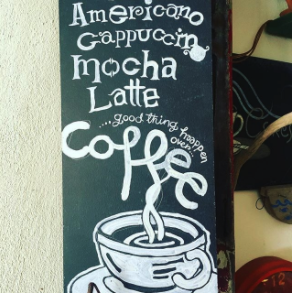 Americano
Cappuccino
Mocha
Latte
....good thing happen
over....
Coffee